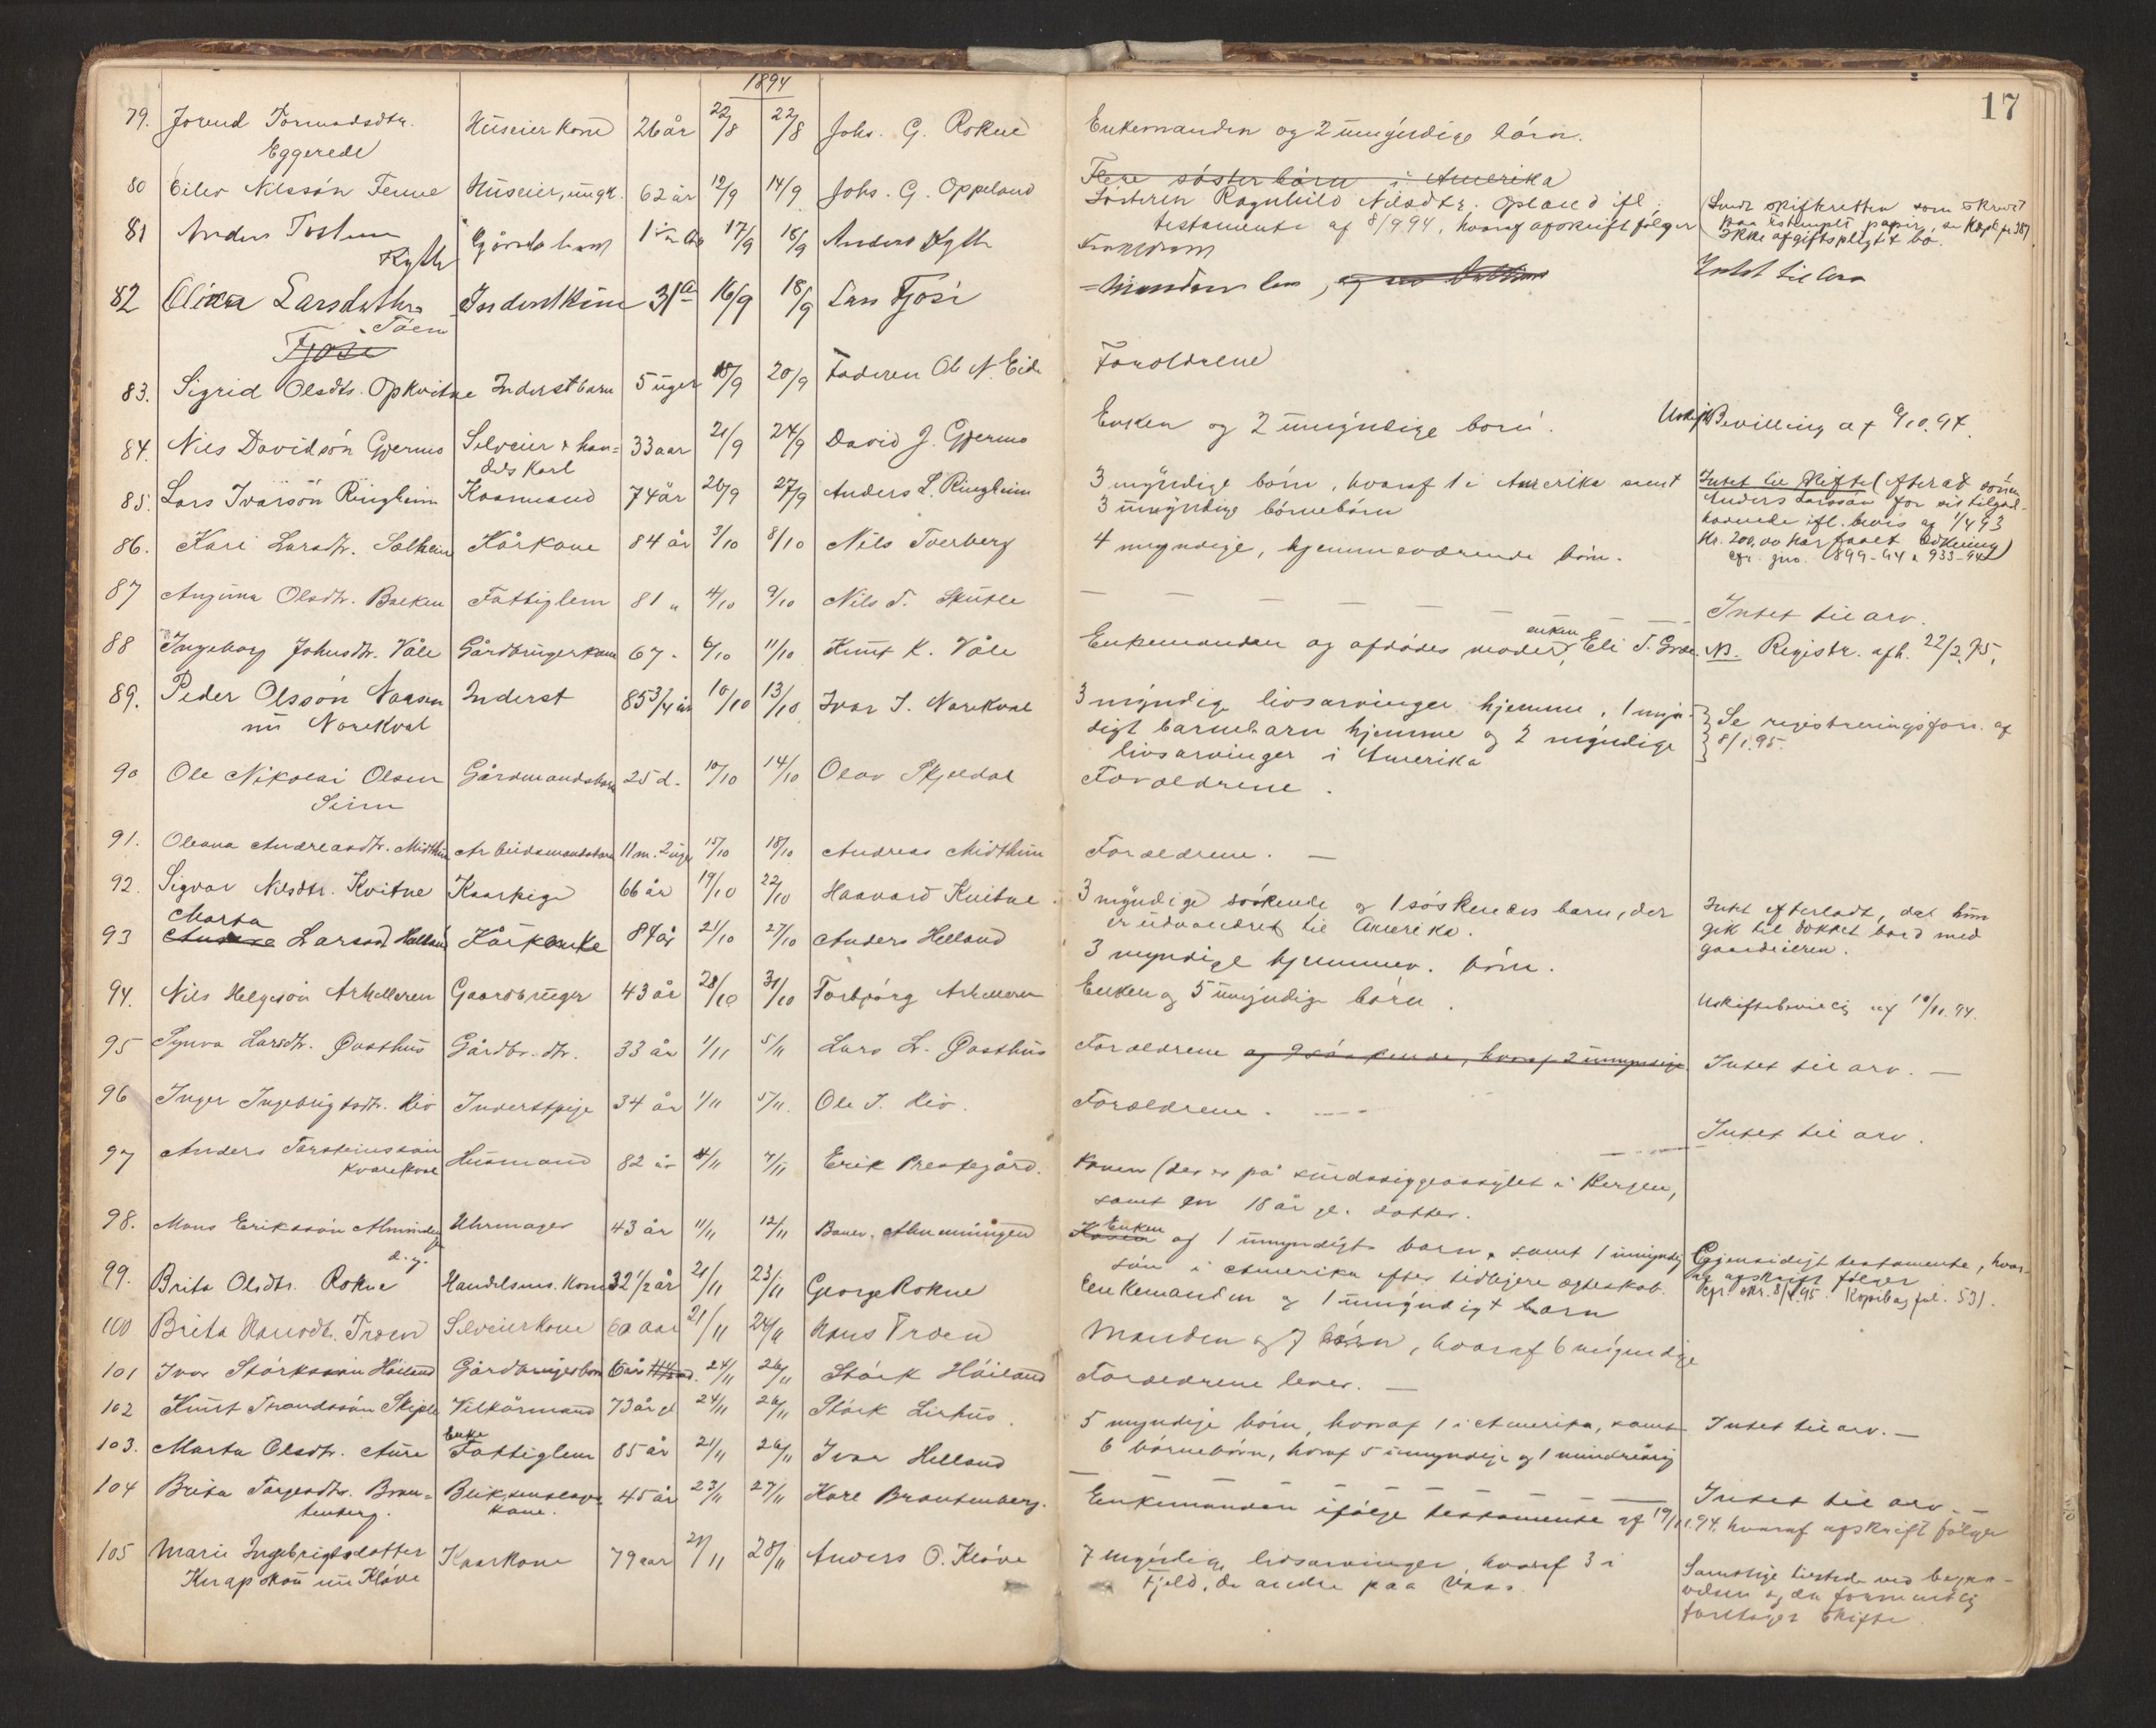 1894
17
79. Jorend Tormodsdtr. Huseierkone 26 år 22/8 22/8 Johs. G. Rokne Enkemanden og 2 umyndige børn.
Eggerede
80 Eilev Nilssón Fenne Huseier, ungk. 62 år 12/9 14/9 Johs. G. Oppeland Flere søsterbørn i Amerika
Søsteren Ragnhild Nilsdtr. Opland ifl.
testamente af 8/9 94, hvoraf afskrift følger
Sendt skifteretten som skrevet
paa ustemplet papir, se Kopb. pr 387
Ikke afgiftspligtit bo.
81 Anders Gårdb. barn 17/9 18/9 Anders Kyte Forældrene Intet til arv
Kyte
82 Larsdatter 31 16/9 18/9 Lars Fjose Manden
Tøen
Fjose
83. Sigrid Olsdtr. Opkvitne Inderstbarn 5 uger 18/9 20/9 Faderen Ole N. Eide Forældrene
84. Nils Davidsón Gjerme Selveier & han= 33 aar 21/9 24/9 David J. Gjerme Enken og 2 umyndige børn. Bevilling af 9/10.94.
dels karl
85. Lars Ivarsón Ringheim Kaarmand 74 år 20/9 27/9 Anders L. Ringheim 3 myndige børn, hvoraf 1 i Amerika samt
3 umyndige børnebørn
Intet til skifte (efterat sønnen
Anders Larssón for sit tilgod-
havende ifl. bevis af 1/4 93
Kr. 200,00 har faaet dækning)
cfr. jno. 899-94 & 933-94
86. Kari Larsdtr. Solheim Kårkone 84 år 3/10 8/10 Nils Tverberg 4 myndige, hjemmeværende børn.
87 Angjerna Olsdtr. Bakken Fattiglem 81 " 4/10 9/10 Nils T. Skutle — — — — — — Intet til arv.
88 Ingeborg Johnsdtr. Våle Gårdbrugerkone 67 - 6/10 11/10 Knut K. Våle Enkemanden og afdødes moder, enken Eli T. NB. Registr. afh. 22/2.95.
89. Peder Olssón Inderst 85 3/4 år 10/10 13/10 Ivar I. Norekval 3 myndige livsarvinger hjemme, 1 myn-
nu Norekval
digt barnebarn hjemme og 2 myndige
livsarvinger i Amerika
Se registreringsforr. af
8/1.95.
90 Ole Nikolai Olsen Gårdmandsbarn 25 d. 10/10 14/10 Olav Skjeldal Forældrene.
Seim
91. Oleana Andreasdtr. Midthun Arbeidsmandsbarn 11 m. 2 uger 15/10 18/10 Andreas Midthun Forældrene. —
92. Sigvor Nilsdtr. Kvitne Kaarpige 66 år 19/10 22/10 Haavard Kvitne 3 myndige søskende og 1 søskendes barn, der
er udvandret til Amerika.
Intet efterladt, da hun
gik til dækket bord med
gaardeieren.
93 Marta Larsd. Helland Kårenke 84 år 21/10 27/10 Anders Helland 3 myndige hjemmev. børn.
94. Nils Helgesón Gaardbruger 43 år 28/10 31/10 Torbjørg Enken og 5 umyndige børn. Uskiftebevillg af 10/11.94.
95 Synva Larsdtr. Øvsthus Gårdbr. dtr. 33 år 1/11 5/11 Lars L. Øvsthus Forældrene og 9 søskende, hvoraf 2 umyndige Intet til arv. —
96 Inger Ingebrigtsdtr. Rio Inderstpige 34 år 1/11 5/11. Ole I. Rio. Forældrene. Intet til arv.
97 Anders Torsteinssón Husmand 82 år 4/11 7/11 Erik Prestegård. Konen (der er på sindssygeasylet i Bergen,
Kvarekval
samt en 18 år gl. datter.
98. Mons Erikssón Uhrmager 43 år 11/11 12/11 Enken og 1 umyndigt barn, samt 1 umyndig
d. y.
søn i Amerika efter tidligere ægteskab.
Gjensidigt testamente, hvor-
af afskrift følger
cfr. skr. 8/1.95. Kopibog fol. 531.
99. Brita Olsdtr. Rokne Handelsms. kone 32 1/2 år 21/11 23/11 George Rokne Enkemanden og 1 umyndigt barn
100 Brita Hansdtr. Troen Selveierkone 60 aar 21/11 24/11 Hans Troen Manden og 7 børn, hvoraf 6 myndige
101 Ivar Størkssón Høiland Gårdbrugerbarn 24/11 26/11 Størk Høiland Forældrene lever. —
102 Knut Trondssón Skiple Vilkårmand 73 år gl 24/11 26/11 Størk Lirhus. 5 myndige børn, hvoraf 1 i Amerika, samt
6 børnebørn, hvoraf 5 umyndige og 1 mindreårig
Intet til arv. —
103. Marta Olsdtr. Aure Enke Fattiglem 85 år 21/11 26/11 Ivar Helland — — Intet til arv. —
104 Brita Torgersdtr. Bran= Blikkenslager 45 år 23/11 27/11 Karl Brantenberg. Enkemanden ifølge testamente af 19/11.94, hvoraf afskrift følger
tenberg. kone.
105 Marie Ingebrigtsdatter Kaarkone 79 aar 21/11 28/11 Anders O. Kløve 7 myndige livsarvinger, hvoraf 3 i
Knapskou nu Kløve
Fjeld, de andre paa Voss.
Samtlige tilstede ved begra-
velsen og da formentlig
foretager skifte.